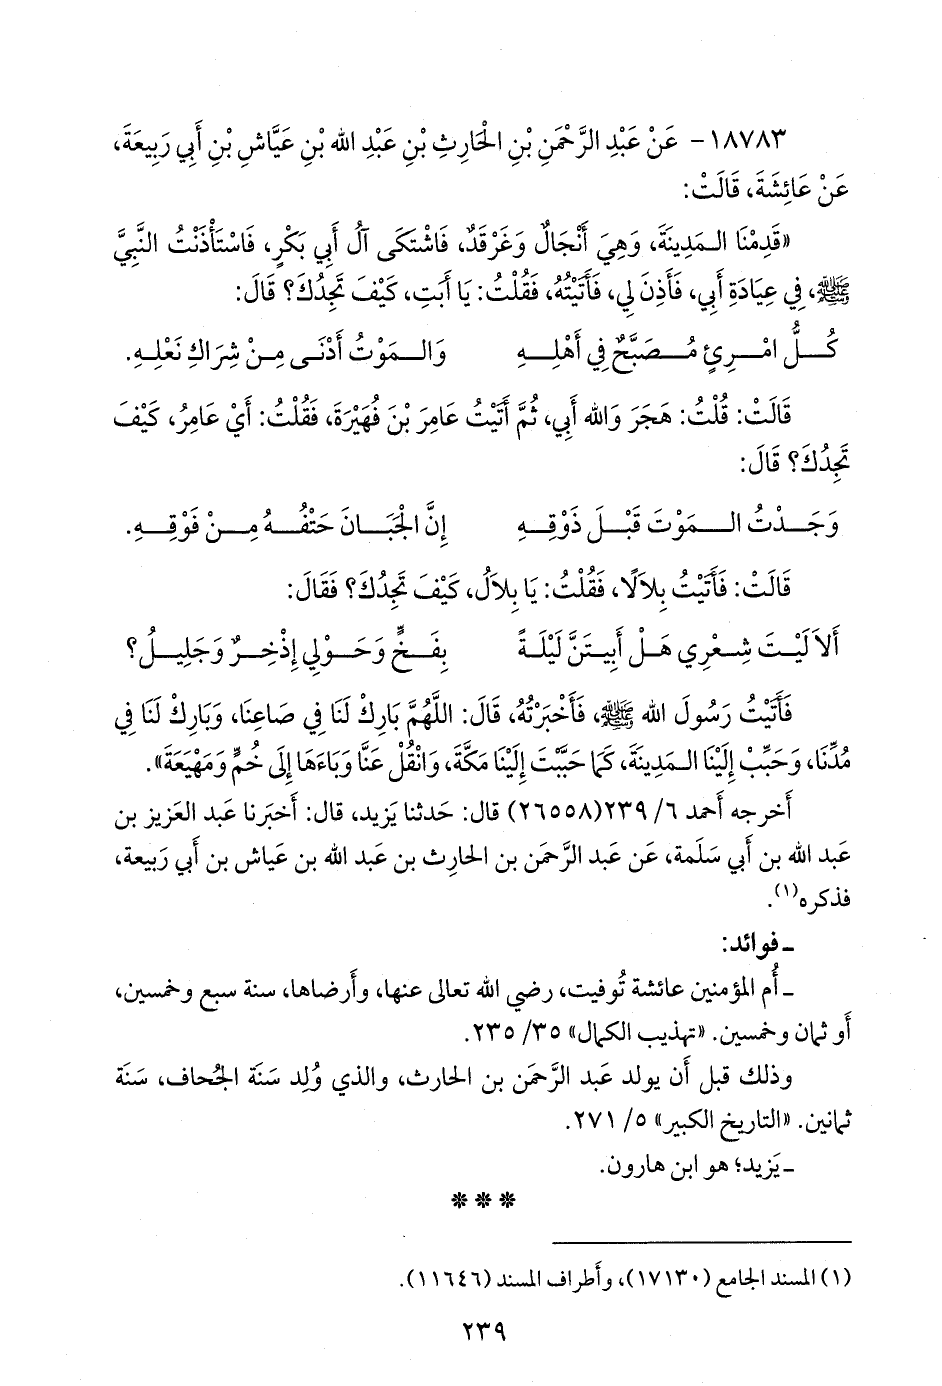 ١٨٧٨٣- عَنْ عَبْدِ الرَّحْمَنِ بْنِ الْحَارِثِ بْنِ عَبْدِ الله بْنِ عَيَّاشِ بْنِ أَبِي رَبِيعَةَ،
عَنْ عَائِشَةَ، قَالَتْ:
«قَدِمْنَا الـمَدِينَةَ، وَهِيَ أَنْجَالٌ وَغَرْقَدٌ، فَاشْتَكَى آلُ أَبِي بَكْرٍ، فَاسْتَأْذَنْتُ النَّبِيَّ
ﷺ، فِي عِيَادَةِ أَبِي، فَأَذِنَ لِي، فَأَتَيْتُهُ، فَقُلْتُ: يَا أَبَتِ، كَيْفَ تَجِدُكَ؟ قَالَ:
كُـلُّ امْـرِئٍ مُـصَبَّحٌ فِي أَهْلِـهِ وَالـمَوْتُ أَدْنَـى مِـنْ شِرَاكِ نَعْلِـهِ.
قَالَتْ: قُلْتُ: هَجَرَ وَالله أَبِي، ثُمَّ أَتَيْتُ عَامِرَ بْنَ فُهَيْرَةَ، فَقُلْتُ: أَيْ عَامِرُ، كَيْفَ
تَجِدُكَ؟ قَالَ:
وَجَـدْتُ الـمَوْتَ قَبْـلَ ذَوْقِـهِ إِنَّ الْجَبَـانَ حَتْفُـهُ مِـنْ فَوْقِـهِ.
قَالَتْ: فَأَتَيْتُ بِلاَلًا، فَقُلْتُ: يَا بِلاَلُ، كَيْفَ تَجِدُكَ؟ فَقَالَ:
أَلاَ لَيْـتَ شِـعْرِي هَـلْ أَبِيـتَنَّ لَيْلَـةً بِفَـخٍّ وَحَـوْلِي إِذْخِـرٌ وَجَلِيـلُ؟
فَأَتَيْتُ رَسُولَ الله ﷺ، فَأَخْبَرْتُهُ، قَالَ: اللَّهُمَّ بَارِكْ لَنَا فِي صَاعِنَا، وَبَارِكْ لَنَا فِي
مُدِّنَا، وَحَبِّبْ إِلَيْنَا الـمَدِينَةَ، كَمَا حَبَّبْتَ إِلَيْنَا مَكَّةَ، وَانْقُلْ عَنَّا وَبَاءَهَا إِلَى خُمٍّ وَمَهْيَعَةَ».
أَخرجه أَحمد ٦/ ٢٣٩(٢٦٥٥٨) قال: حَدثنا يَزيد، قال: أَخبَرنا عَبد العَزيز بن
عَبد الله بن أَبي سَلَمة، عَن عَبد الرَّحمَن بن الحارِث بن عَبد الله بن عَياش بن أَبي رَبيعة،
فذكره(١).
ـ فوائد:
ـ أُم المؤمنين عائشة تُوفيت، رضي الله تعالى عنها، وأَرضاها، سنة سبع وخمسين،
أَو ثمان وخمسين. «تهذيب الكمال» ٣٥/ ٢٣٥.
وذلك قبل أَن يولد عَبد الرَّحمَن بن الحارث، والذي وُلِد سَنَة الجُحاف، سَنَة
ثمانين. «التاريخ الكبير» ٥/ ٢٧١.
ـ يَزيد؛ هو ابن هارون.
***
(١) المسند الجامع (١٧١٣٠)، وأَطراف المسند (١١٦٤٦).
٢٣٩